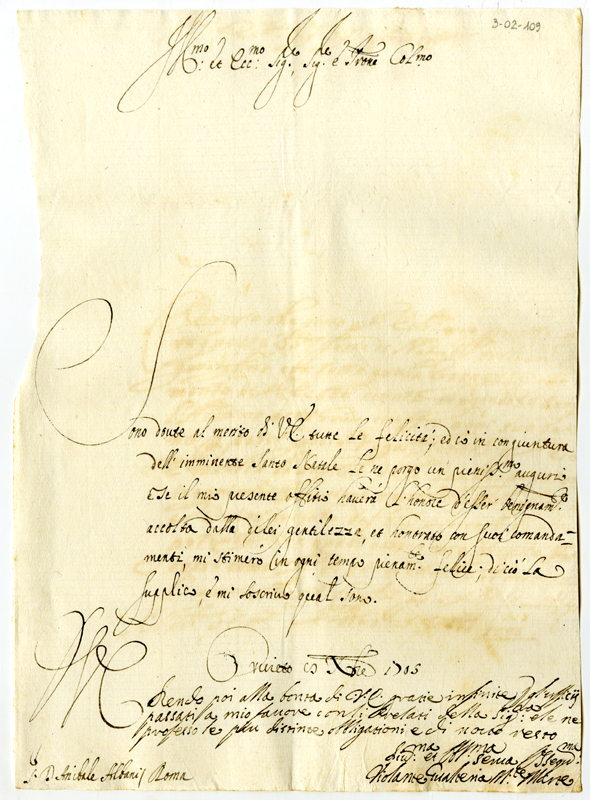 3-02-109
Ill:mo et Ecc:mo Sig:re Sig:re e Prone Colmo
Sono doute al merito di VE tutte le felicità; ed io in congiuntura
dell'imminente Santo Natale le ne porgo un pieniss:mo augurio
e se il mio presente offitio hauerà l'honore d'esser benignam:te
accolto dalla di lei gentilezza, et honorato con suoi comanda=
menti, mi stimerò in ogni tempo pienam:te felice; di ciò la
supplico, e mi soscriuo qual sono.
Oruieto 1705
VE
Rendo poi alla bontà di VE gratie infinite
passati a mio fauore con Prelati della e le ne
professo le più distinte obligationi e di nuouo resto
Diu:ma et Obl:ma serua
Violante Gualteria
S. D Anibale Albanij Roma